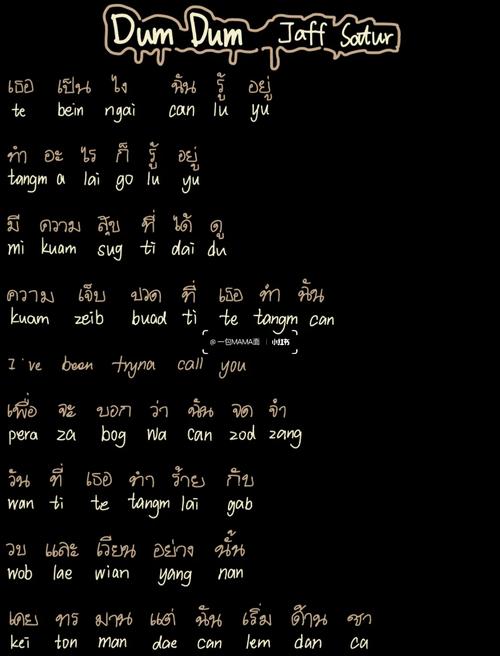 Dum Dum Jaff Satur
เธอ เป็น ไง ฉัน รู้ อยู่
te bein ngai can lu yu
ทำ อะ ไร ก็ รู้ อยู่
tangm a lai go lu yu
มี ความ สุข ที่ ได้ ดู
mi kuam sug ti dai du
ความ เจ็บ ปวด ที่ เธอ ทำ ฉัน
kuam zeib buad ti te tangm can
@一包MAMA面 | 小红书
I've been tryna call you
เพื่อ จะ บอก ว่า ฉัน จด จำ
pera za bog wa can zod zang
วัน ที่ เธอ ทำ ร้าย กับ
wan ti te tangm lai gab
วบ และ เวียน อย่าง นั้น
wob lae wian yang nan
เคย ทร มาน แต่ ฉัน เริ่ม ด้าน ชา
kei ton man dae can lem dan ca